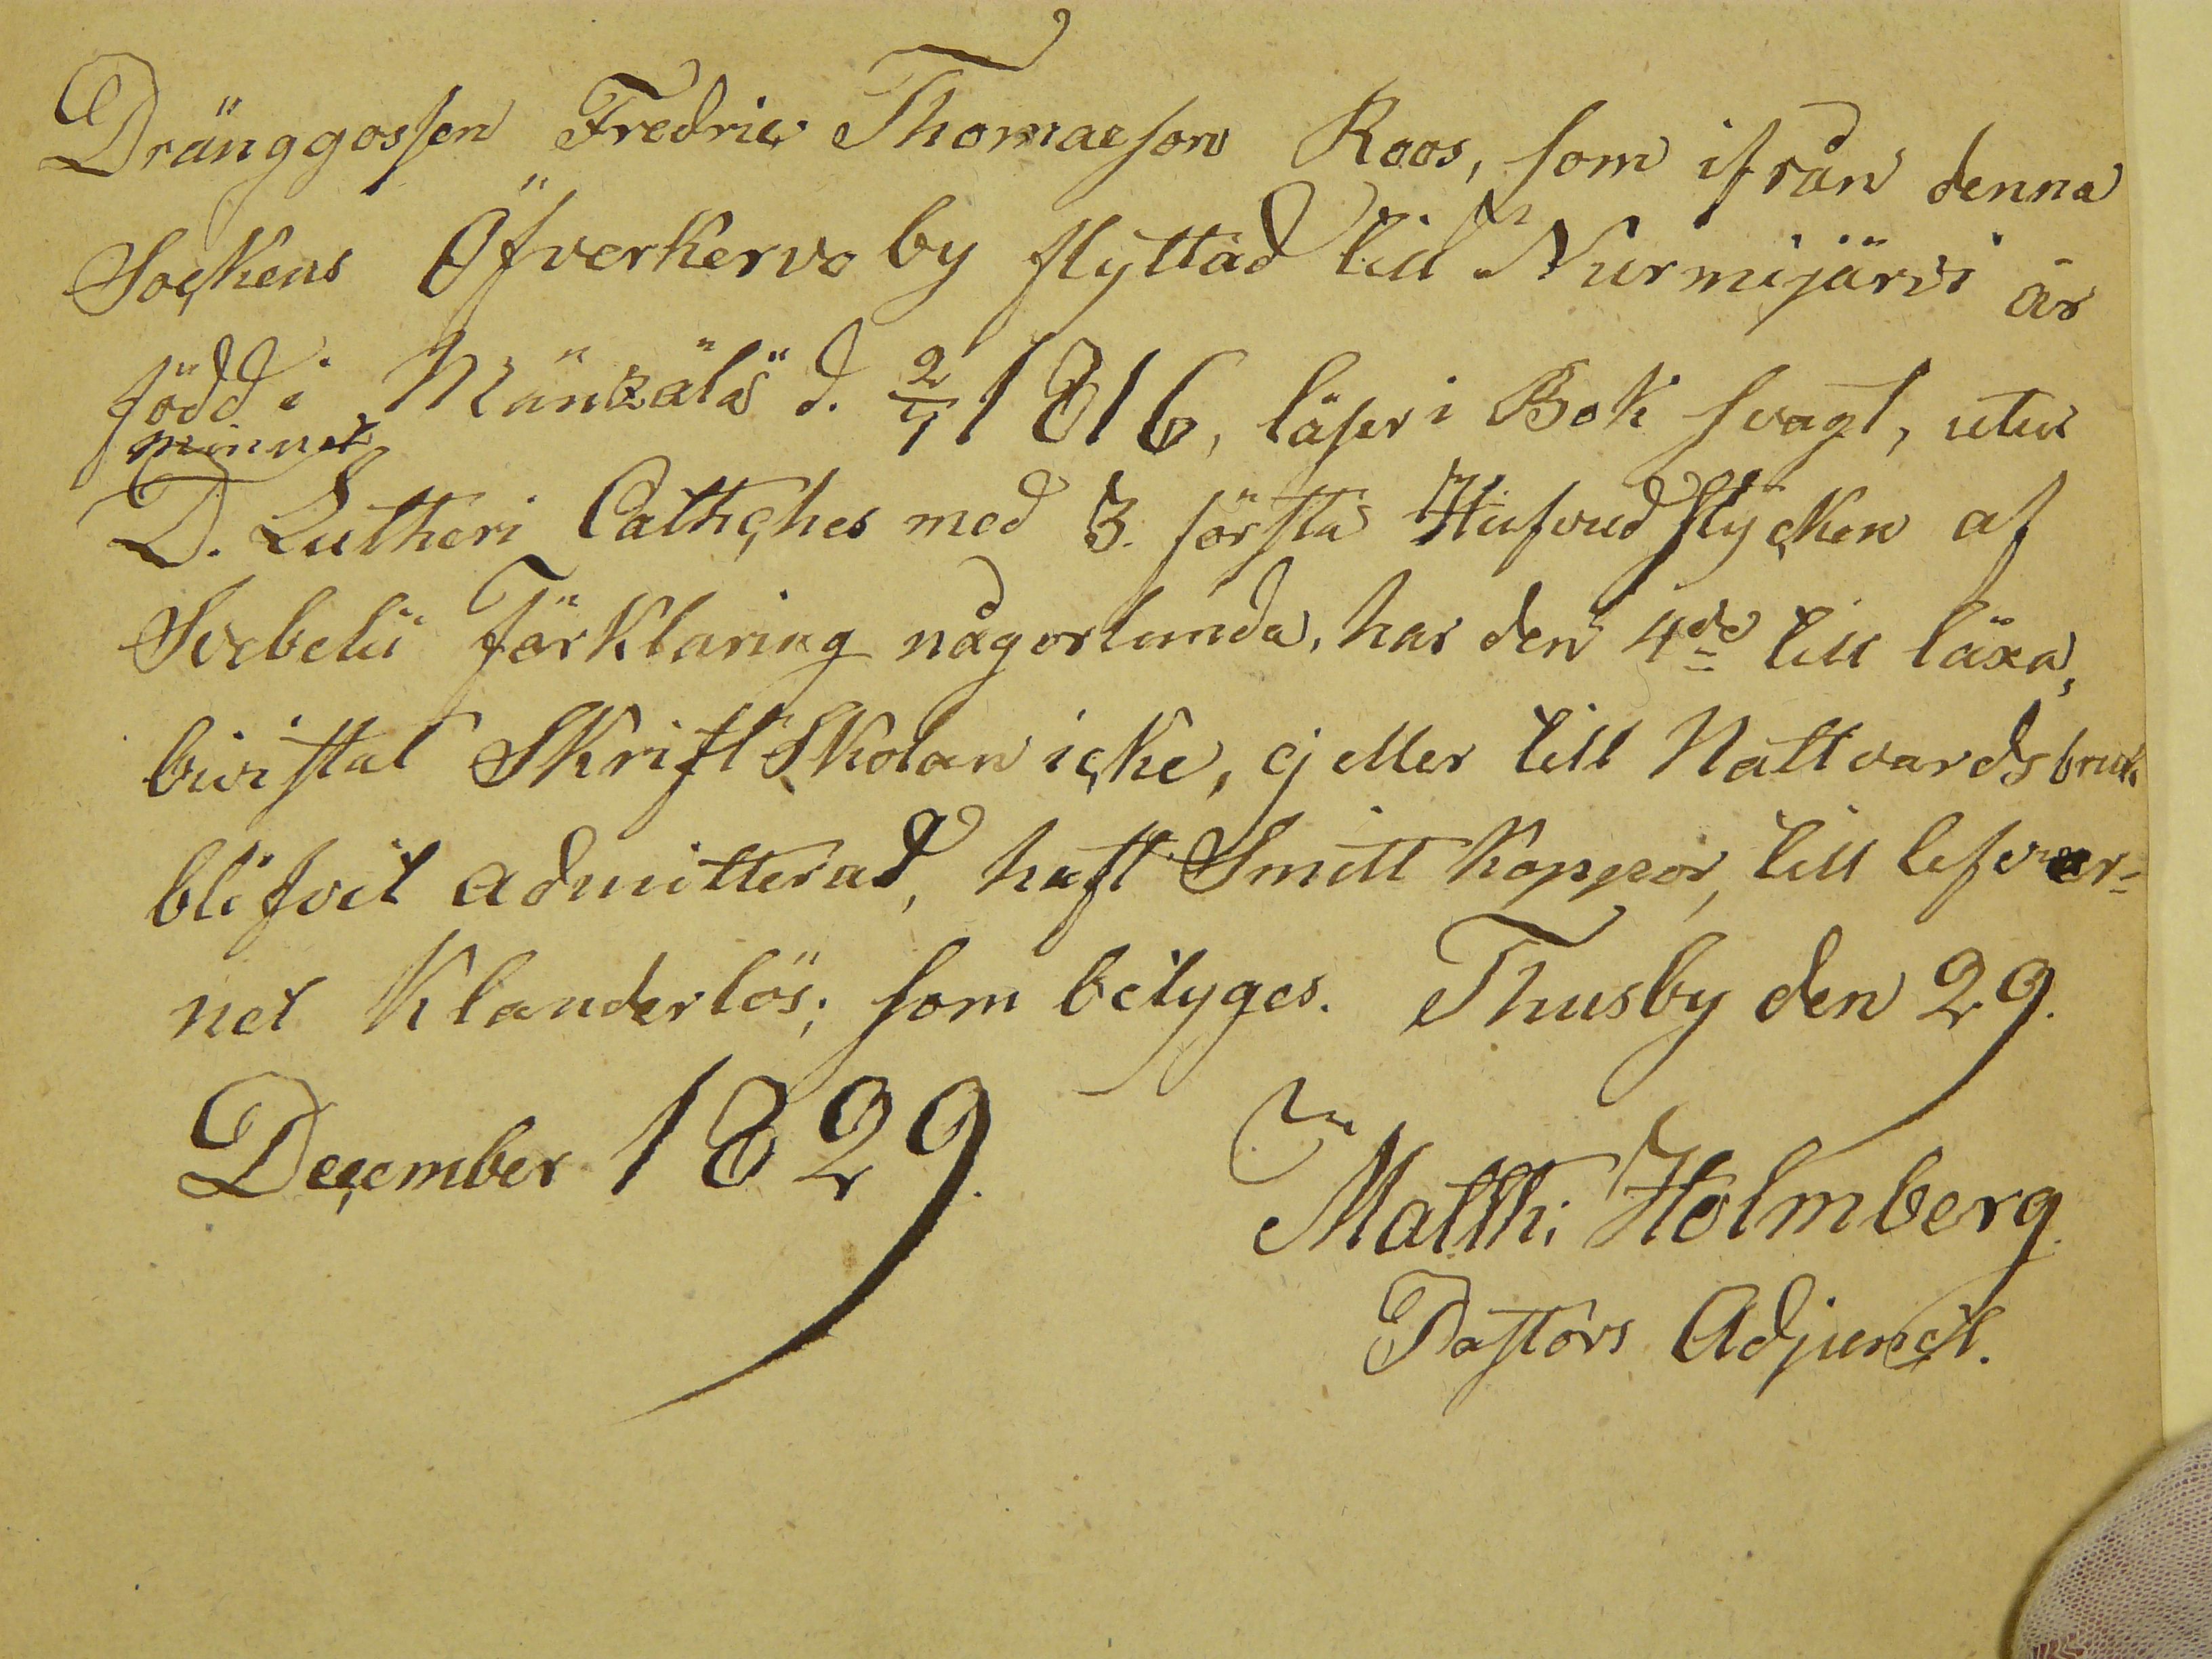 Dränggossen Fredric Thomaeson Roos, som ifrån denna
Sockens Öfverkervo by flyttad till Nurmijärvi är
född i Mänzälä d. 2/1 1816, läser i Bok svagt, utur
minnet
D. Lutheri Cathches med 3. första Hufvudstycken af
Svebelii Förklaring någorlunda, har den 4de till läxa,
bivistat Skriftskolan icke, ej eller till Nattvardsbruk
blifvit admitterad, haft Smittkoppor, till lefver-
net Klanderlös; som betyges. Thusby den 29.
December 1829.
Matth: Holmberg
Pastors Adjunct.